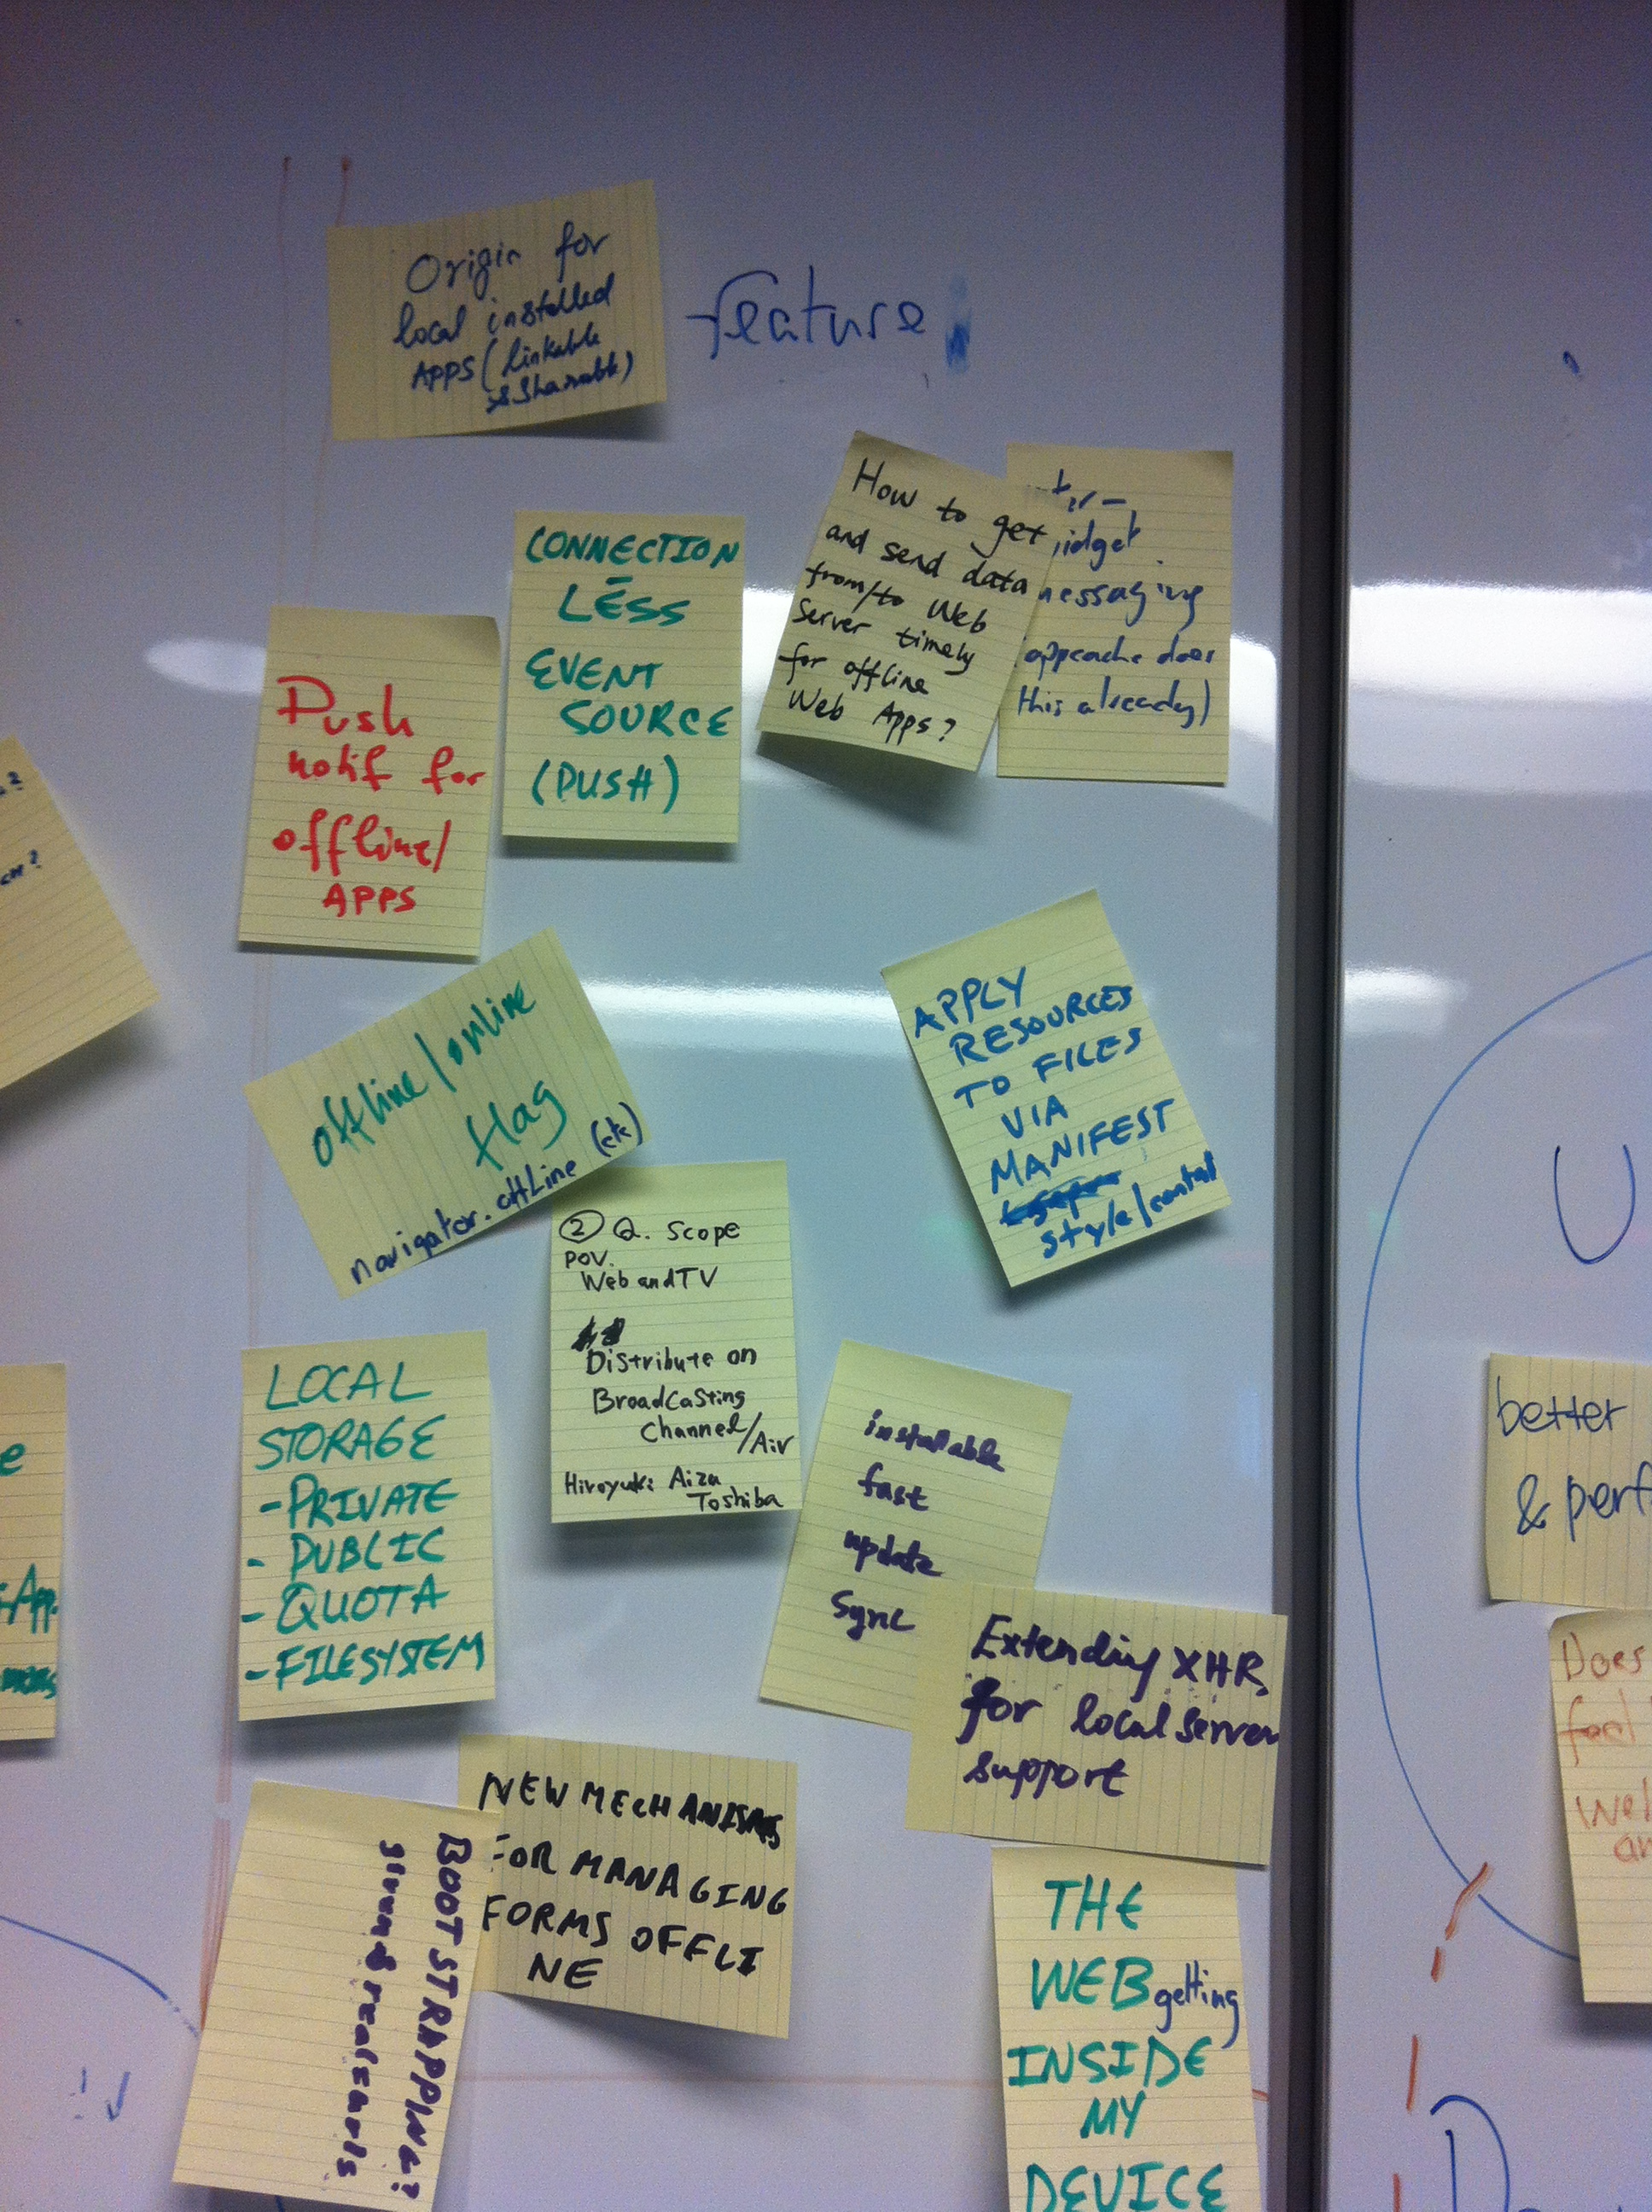 Origin for
local installed
APPS (linkable
& Sharable)
feature
How to get
and send data
from/to Web
Server timely
for offline
Web Apps?
appcache does
this already)
CONNECTION
LESS
EVENT
SOURCE
(PUSH)
Push
notif for
offline/
APPS
offline/online
flag
navigator.offLine (etc)
APPLY
RESOURCES
TO FILES
VIA
MANIFEST
style/
② Q. Scope
POV.
Web and TV
Distribute on
BroadCasting
Channel/Air
Hiroyuki Aizu
Toshiba
LOCAL
STORAGE
- PRIVATE
- PUBLIC
- QUOTA
- FILESYSTEM
installable
fast
update
sync
Extending XHR
for local server
support
NEW MECHANISMS
FOR MANAGING
FORMS OFFLI
NE
BOOTSTRAPPING?
THE
WEB getting
INSIDE
MY
DEVICE
U
better
& perf
Does
feel